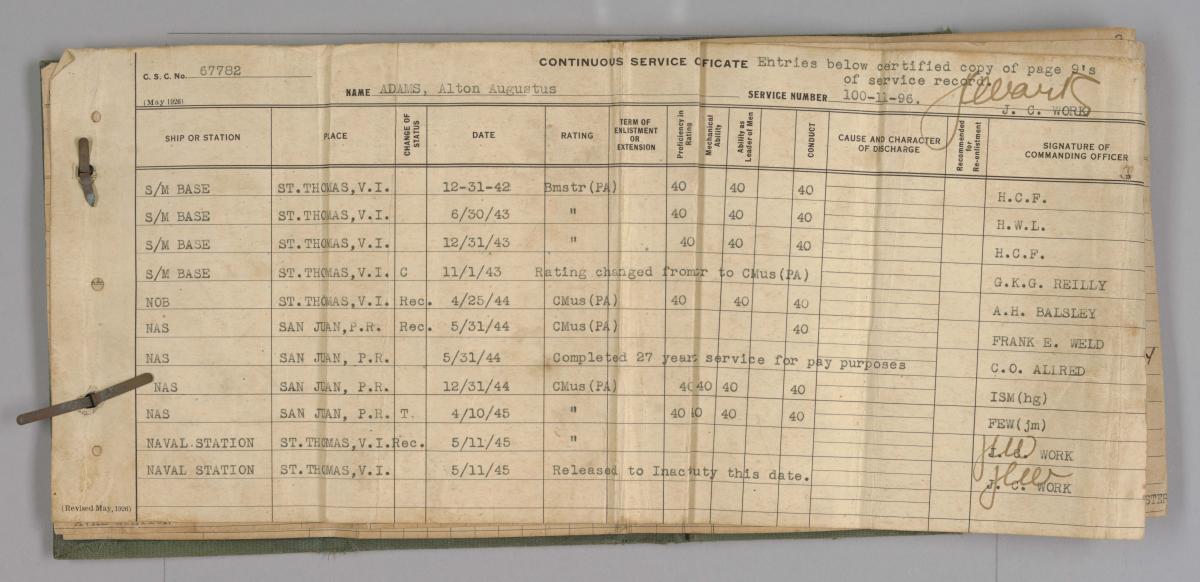 C. S. C. No. 67782
CONTINUOUS SERVICE CFICATE Entries below certified copy of page 9's
of service record.
(May 1926)
NAME ADAMS, Alton Augustus SERVICE NUMBER 100-11-96.
J. C. WORK
SHIP OR STATION PLACE CHANGE OF STATUS DATE RATING TERM OF ENLISTMENT OR EXTENSION Proficiency in Rating Mechanical Ability Ability as Leader of Men CONDUCT CAUSE AND CHARACTER OF DISCHARGE Recommended for Re-enlistment SIGNATURE OF COMMANDING OFFICER
S/M BASE ST.THOMAS,V.I. 12-31-42 Bmstr(PA) 40 40 40 H.C.F.
S/M BASE ST.THOMAS,V.I. 6/30/43 " 40 40 40 H.W.L.
S/M BASE ST.THOMAS,V.I. 12/31/43 " 40 40 40 H.C.F.
S/M BASE ST.THOMAS,V.I. C 11/1/43 Rating changed from r to CMus(PA) G.K.G. REILLY
NOB ST.THOMAS,V.I. Rec. 4/25/44 CMus(PA) 40 40 40 A.H. BALSLEY
NAS SAN JUAN,P.R. Rec. 5/31/44 CMus(PA) 40 FRANK E. WELD
NAS SAN JUAN, P.R. 5/31/44 Completed 27 year service for pay purposes C.O. ALLRED
NAS SAN JUAN, P.R. 12/31/44 CMus(PA) 40 40 40 40 ISM(hg)
NAS SAN JUAN, P.R. T. 4/10/45 " 40 40 40 40 FEW(jm)
NAVAL STATION ST.THOMAS,V.I. Rec. 5/11/45 " J.C. WORK
NAVAL STATION ST.THOMAS,V.I. 5/11/45 Released to Inac uty this date. J. C. WORK
(Revised May, 1926)